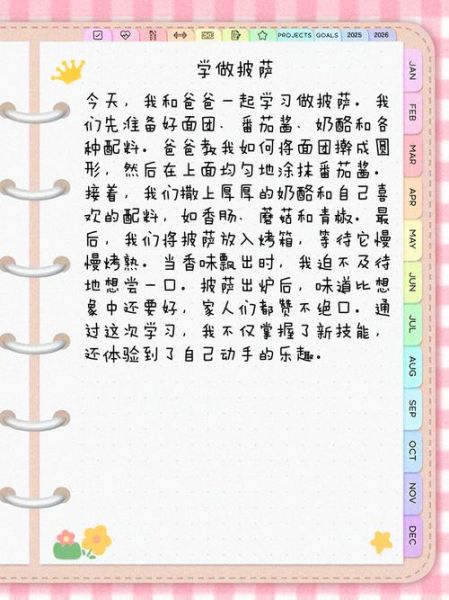 PROJECTS GOALS 2025 2026
学做披萨
今天，我和爸爸一起学习做披萨。我
们先准备好面团、番茄酱、奶酪和各
种配料。爸爸教我如何将面团擀成圆
形，然后在上面均匀地涂抹番茄酱。
接着，我们撒上厚厚的奶酪和自己喜
欢的配料，如香肠、蘑菇和青椒。最
后，我们将披萨放入烤箱，等待它慢
慢烤熟。当香味飘出时，我迫不及待
地想尝一口。披萨出炉后，味道比想
象中还要好，家人们都赞不绝口。通
过这次学习，我不仅掌握了新技能，
还体验到了自己动手的乐趣。
JAN
FEB
MAR
APR
MAY
JUN
JUL
AUG
SEP
OCT
NOV
DEC